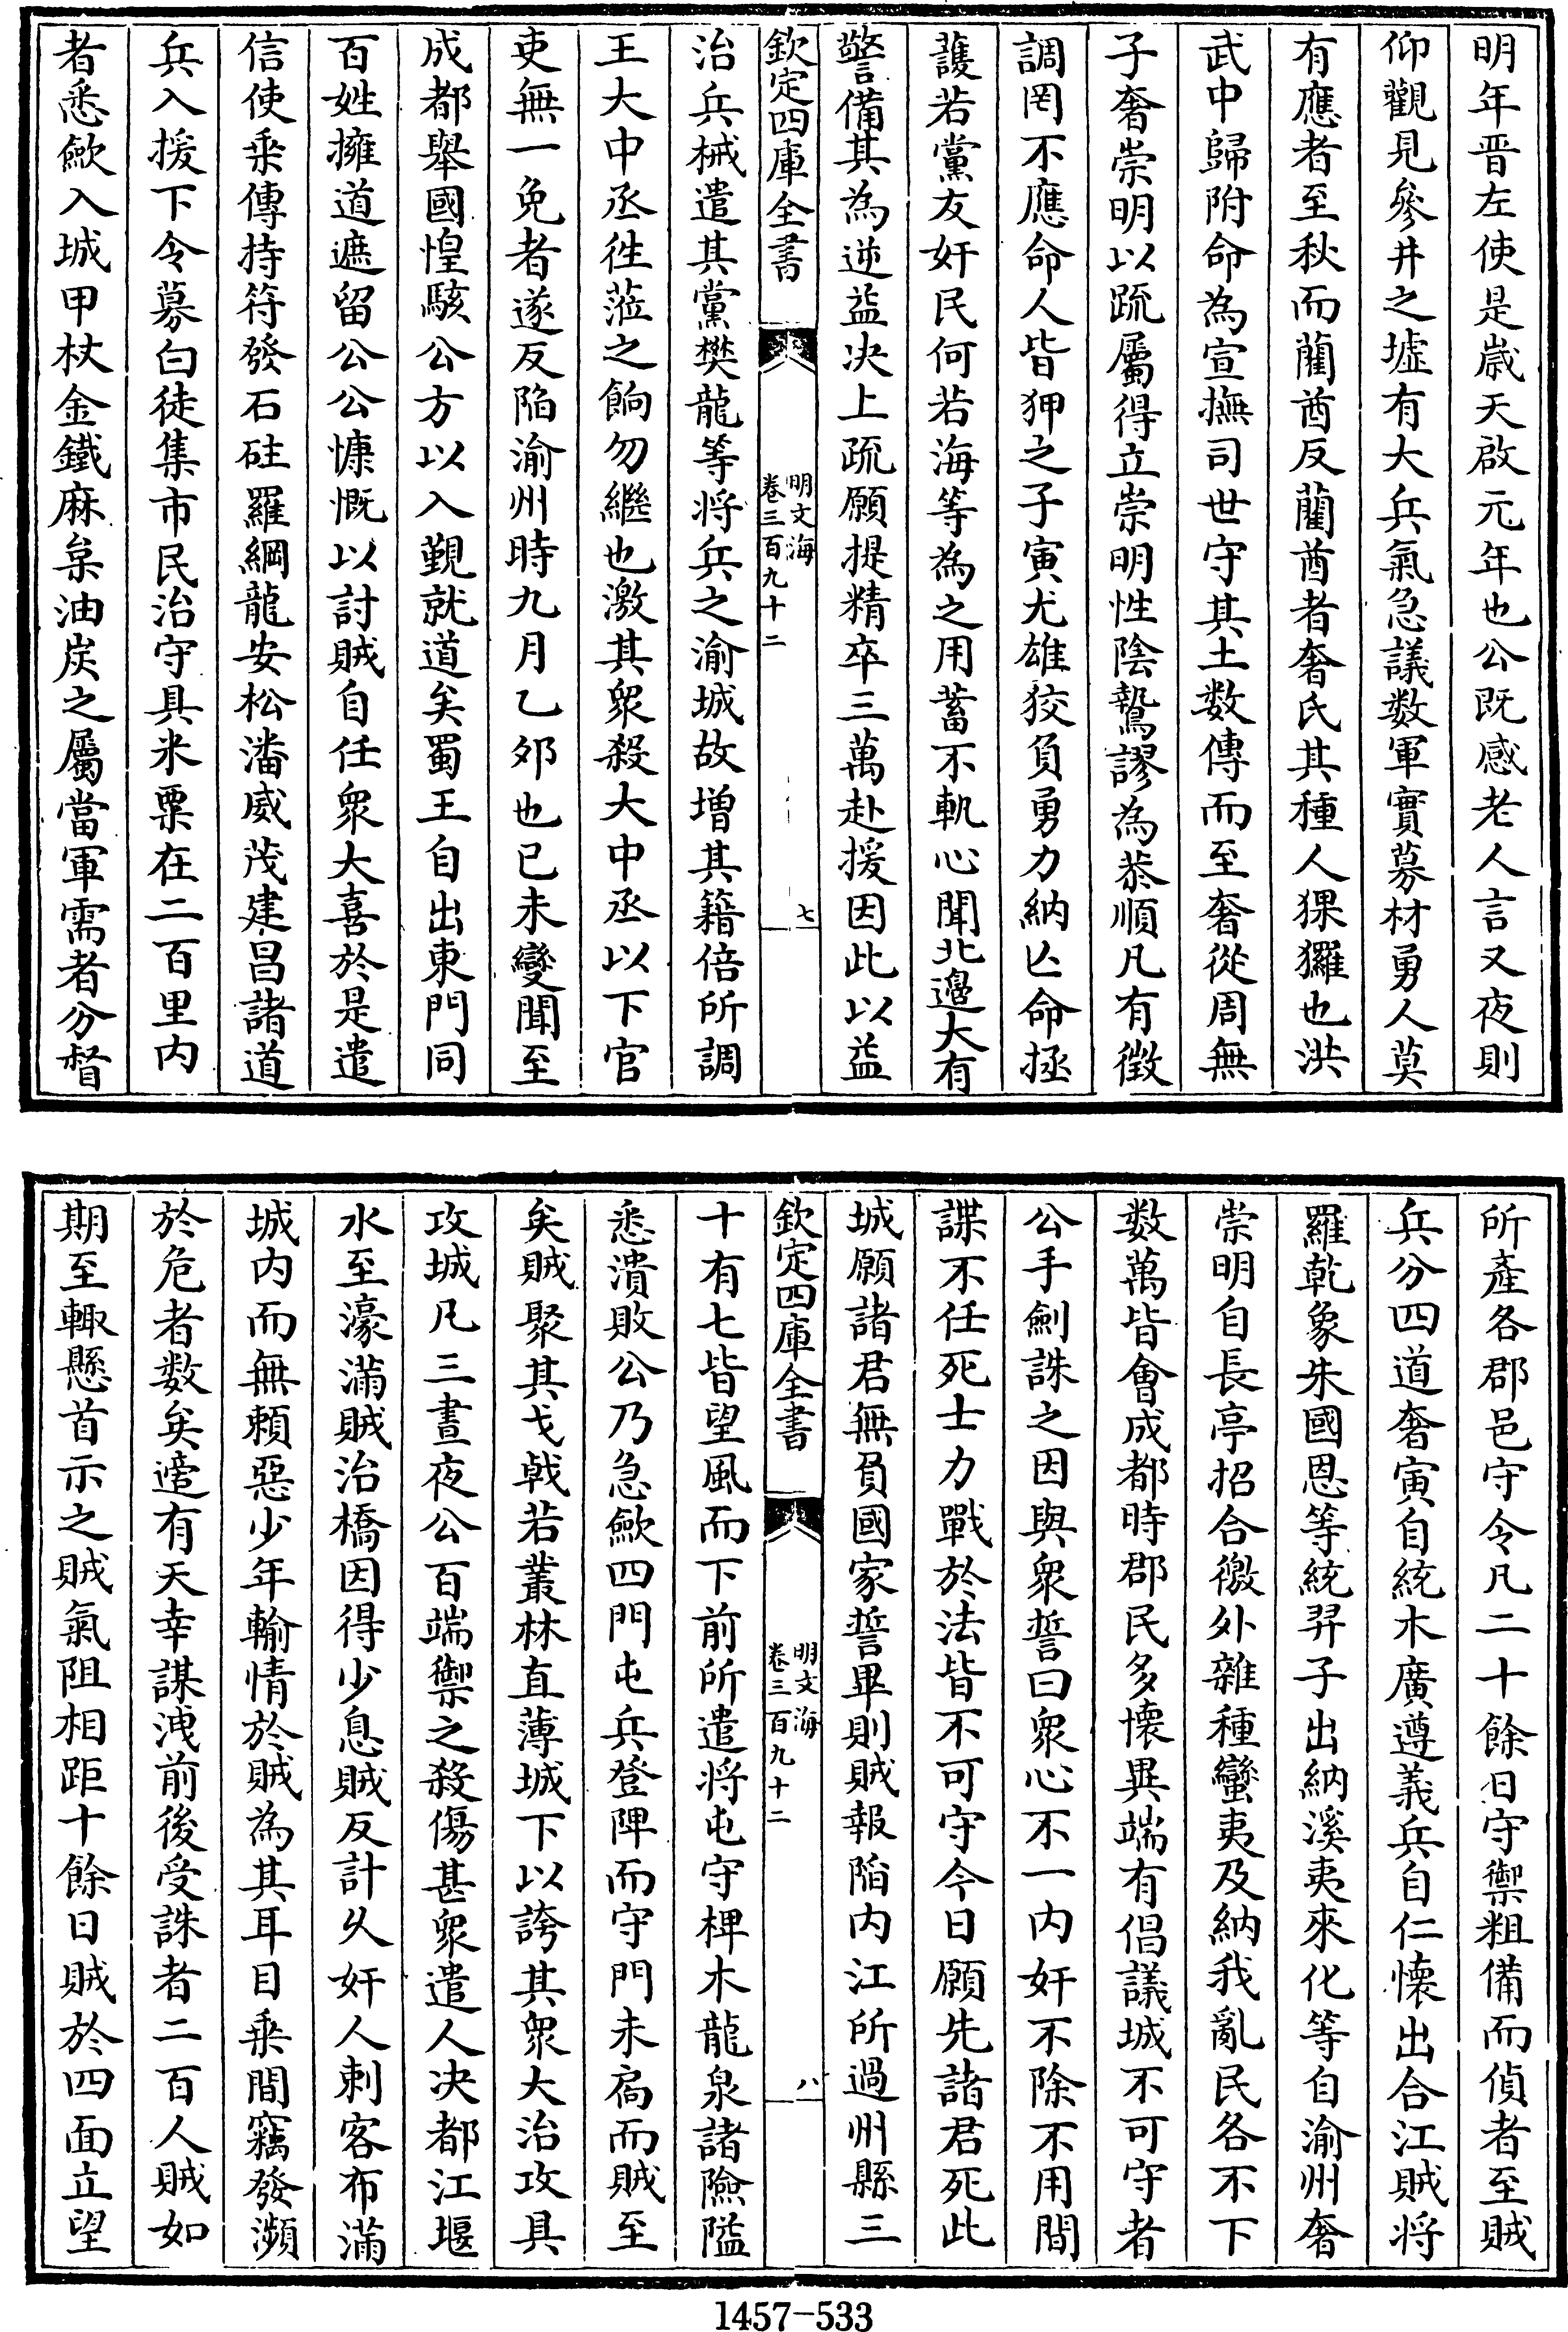 明年晋左使是歲天啟元年也公既感老人言又夜則
仰觀見參井之墟有大兵氣急議数軍實募材勇人莫
有應者至秋而藺酋反藺酋者奢氏其種人猓玀也洪
武中歸附命為宣撫司世守其土数傳而至奢從周無
子奢崇明以䟽屬得立崇明性陰鷙謬為恭順凡有徴
調罔不應命人皆狎之子寅尤雄狡負勇力納亾命拯
護若黨友奸民何若海等為之用蓄不軌心聞北邉大有
警備其為逆益决上疏願提精卒三萬赴援因此以益
欽定四庫全書
明文海
卷三百九十二
七
治兵械遣其黨樊龍等将兵之渝城故增其籍倍所調
王大中丞徃蒞之餉勿繼也激其衆殺大中丞以下官
吏無一免者遂反陷渝州時九月乙夘也已未變聞至
成都舉國惶駭公方以入覲就道矣蜀王自出東門同
百姓擁道遮留公公慷慨以討賊自任衆大喜於是遣
信使乘傳持符發石砫羅綱龍安松潘威茂建昌諸道
兵入援下令募白徒集市民治守具米粟在二百里内
者悉歛入城甲杖金鐵麻枲油炭之屬當軍需者分督
所產各郡邑守令凡二十餘日守禦粗備而偵者至賊
兵分四道奢寅自統木廣遵義兵自仁懷出合江賊将
羅乾象朱國恩等統羿子出納溪夷來化等自渝州奢
崇明自長亭招合徼外雜種蠻夷及納我亂民各不下
数萬皆會成都時郡民多懷異端有倡議城不可守者
公手劍誅之因與衆誓曰衆心不一内奸不除不用間
諜不任死士力戰於法皆不可守今日願先諸君死此
城願諸君無負國家誓畢則賊報陷内江所過州縣三
欽定四庫全書
明文海
卷三百九十二
八
十有七皆望風而下前所遣将屯守椑木龍泉諸險隘
悉潰敗公乃急歛四門屯兵登陴而守門未扃而賊至
矣賊聚其戈戟若叢林直薄城下以誇其衆大治攻具
攻城凡三晝夜公百端禦之殺傷甚衆遣人决都江堰
水至濠滿賊治橋因得少息賊反計乆奸人刺客布滿
城内而無賴惡少年輸情於賊為其耳目乘間竊發瀕
於危者数矣䢐有天幸謀洩前後受誅者二百人賊如
期至輙懸首示之賊氣阻相距十餘日賊於四面立望
1457-533